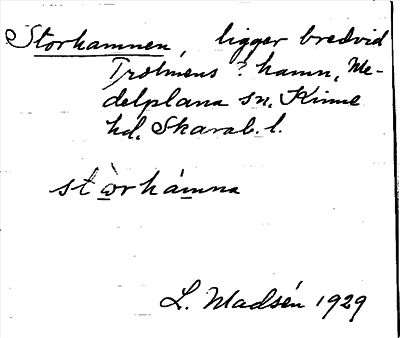 Storhamnen, ligger bredvid
Trolmens? hamn, Me-
delplana sn. Kinne
hd. Skarab. l.
stòrhámna
L. Madsén 1929